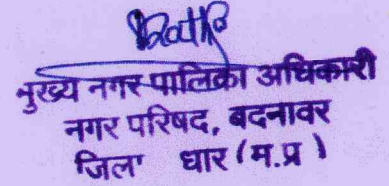 मुख्य नगर पालिका अधिकारी
नगर परिषद, बदनावर
जिला धार (म.प्र)